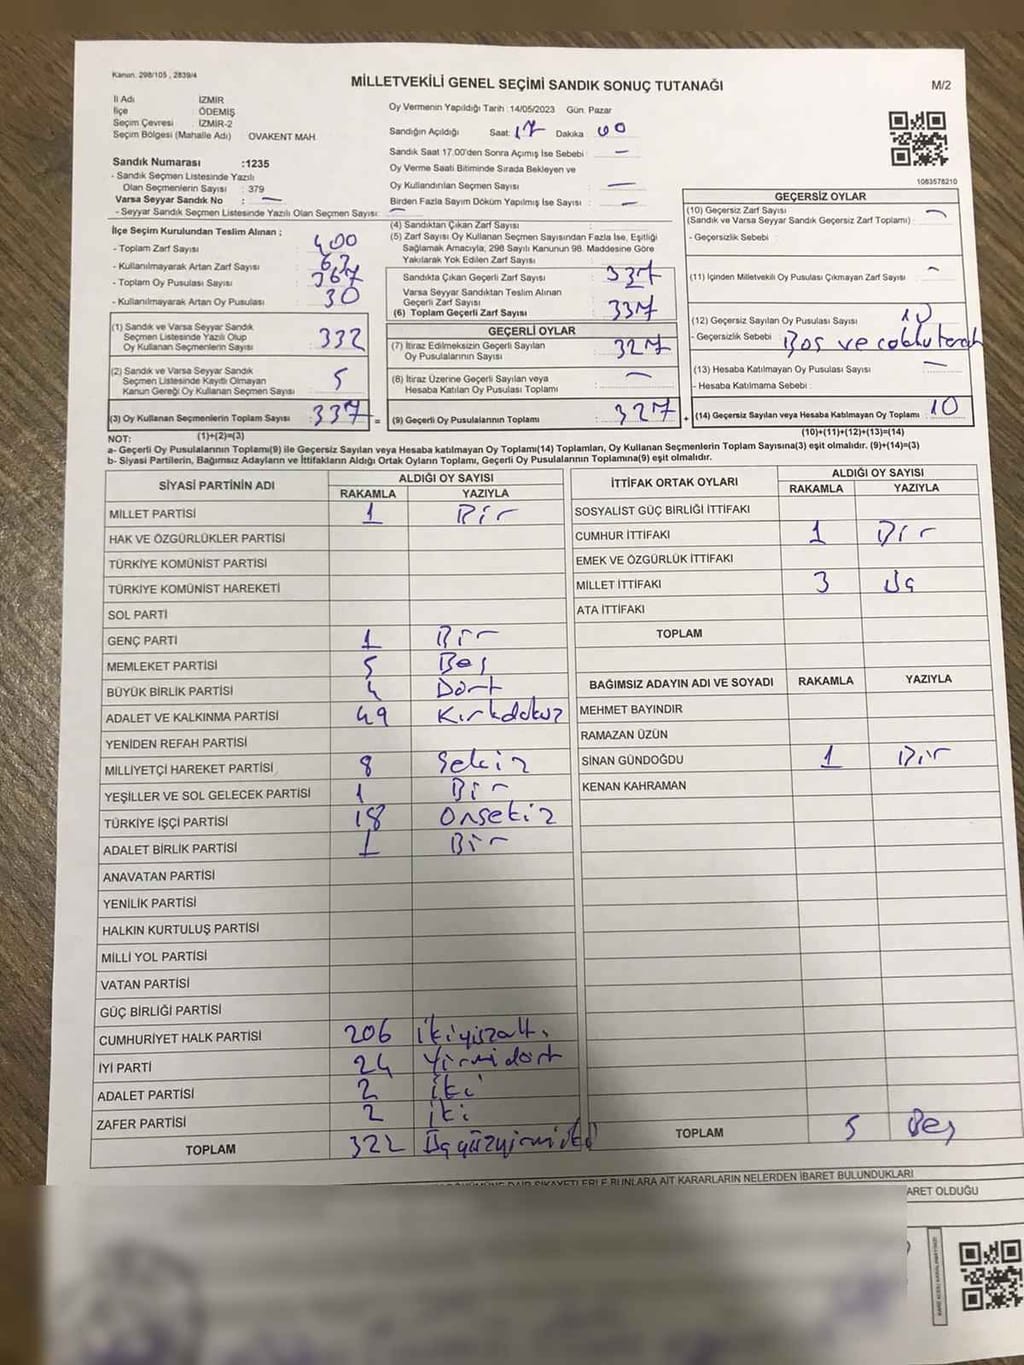 Kanun. 298/105 , 2839/4
MİLLETVEKİLİ GENEL SEÇİMİ SANDIK SONUÇ TUTANAĞI
M/2
İl Adı İZMİR
İlçe ÖDEMİŞ
Seçim Çevresi İZMİR-2
Seçim Bölgesi (Mahalle Adı) OVAKENT MAH.
Sandık Numarası :1235
- Sandık Seçmen Listesinde Yazılı
Olan Seçmenlerin Sayısı : 379
Varsa Seyyar Sandık No : —
- Seyyar Sandık Seçmen Listesinde Yazılı Olan Seçmen Sayısı: —
İlçe Seçim Kurulundan Teslim Alınan ;
- Toplam Zarf Sayısı : 400
- Kullanılmayarak Artan Zarf Sayısı : 63
- Toplam Oy Pusulası Sayısı : 367
- Kullanılmayarak Artan Oy Pusulası : 30
(1) Sandık ve Varsa Seyyar Sandık
Seçmen Listesinde Yazılı Olup
Oy Kullanan Seçmenlerin Sayısı : 332
(2) Sandık ve Varsa Seyyar Sandık
Seçmen Listesinde Kayıtlı Olmayan
Kanun Gereği Oy Kullanan Seçmen Sayısı : 5
(3) Oy Kullanan Seçmenlerin Toplam Sayısı : 337 =
Oy Vermenin Yapıldığı Tarih : 14/05/2023 Gün. Pazar
Sandığın Açıldığı Saat: 17 Dakika 00
Sandık Saat 17.00'den Sonra Açımış İse Sebebi : —
Oy Verme Saati Bitiminde Sırada Bekleyen ve
Oy Kullandırılan Seçmen Sayısı : —
Birden Fazla Sayım Döküm Yapılmış İse Sayısı : —
(4) Sandıktan Çıkan Zarf Sayısı :
(5) Zarf Sayısı Oy Kullanan Seçmen Sayısından Fazla İse, Eşitliği
Sağlamak Amacıyla, 298 Sayılı Kanunun 98. Maddesine Göre
Yakılarak Yok Edilen Zarf Sayısı :
Sandıkta Çıkan Geçerli Zarf Sayısı : 337
Varsa Seyyar Sandıktan Teslim Alınan
Geçerli Zarf Sayısı : —
(6) Toplam Geçerli Zarf Sayısı : 337
GEÇERLİ OYLAR
(7) İtiraz Edilmeksizin Geçerli Sayılan
Oy Pusulalarının Sayısı : 327
(8) İtiraz Üzerine Geçerli Sayılan veya
Hesaba Katılan Oy Pusulası Toplamı : —
(9) Geçerli Oy Pusulalarının Toplamı : 327 +
1083578210
GEÇERSİZ OYLAR
(10) Geçersiz Zarf Sayısı : —
(Sandık ve Varsa Seyyar Sandık Geçersiz Zarf Toplamı)
- Geçersizlik Sebebi :
(11) İçinden Milletvekili Oy Pusulası Çıkmayan Zarf Sayısı : —
(12) Geçersiz Sayılan Oy Pusulası Sayısı : 10
- Geçersizlik Sebebi : Boş ve
(13) Hesaba Katılmayan Oy Pusulası Sayısı : —
- Hesaba Katılmama Sebebi :
(14) Geçersiz Sayılan veya Hesaba Katılmayan Oy Toplamı : 10
(10)+(11)+(12)+(13)=(14)
NOT: (1)+(2)=(3)
a- Geçerli Oy Pusulalarının Toplamı(9) ile Geçersiz Sayılan veya Hesaba katılmayan Oy Toplamı(14) Toplamları, Oy Kullanan Seçmenlerin Toplam Sayısına(3) eşit olmalıdır. (9)+(14)=(3)
b- Siyasi Partilerin, Bağımsız Adayların ve İttifakların Aldığı Ortak Oyların Toplamı, Geçerli Oy Pusulalarının Toplamına(9) eşit olmalıdır.
SİYASİ PARTİNİN ADI ALDIĞI OY SAYISI
RAKAMLA YAZIYLA
MİLLET PARTİSİ 1 Bir
HAK VE ÖZGÜRLÜKLER PARTİSİ
TÜRKİYE KOMÜNİST PARTİSİ
TÜRKİYE KOMÜNİST HAREKETİ
SOL PARTİ
GENÇ PARTİ 1 Bir
MEMLEKET PARTİSİ 5 Beş
BÜYÜK BİRLİK PARTİSİ 4 Dört
ADALET VE KALKINMA PARTİSİ 49 Kırkdokuz
YENİDEN REFAH PARTİSİ
MİLLİYETÇİ HAREKET PARTİSİ 8 Sekiz
YEŞİLLER VE SOL GELECEK PARTİSİ 1 Bir
TÜRKİYE İŞÇİ PARTİSİ 18 Onsekiz
ADALET BİRLİK PARTİSİ 1 Bir
ANAVATAN PARTİSİ
YENİLİK PARTİSİ
HALKIN KURTULUŞ PARTİSİ
MİLLİ YOL PARTİSİ
VATAN PARTİSİ
GÜÇ BİRLİĞİ PARTİSİ
CUMHURİYET HALK PARTİSİ 206 İkiyüzaltı
İYİ PARTİ 24 Yirmidört
ADALET PARTİSİ 2 İki
ZAFER PARTİSİ 2 İki
TOPLAM 322 Üçyüzyirmiiki
İTTİFAK ORTAK OYLARI ALDIĞI OY SAYISI
RAKAMLA YAZIYLA
SOSYALİST GÜÇ BİRLİĞİ İTTİFAKI
CUMHUR İTTİFAKI 1 Bir
EMEK VE ÖZGÜRLÜK İTTİFAKI
MİLLET İTTİFAKI 3 Üç
ATA İTTİFAKI
TOPLAM
BAĞIMSIZ ADAYIN ADI VE SOYADI RAKAMLA YAZIYLA
MEHMET BAYINDIR
RAMAZAN ÜZÜN
SİNAN GÜNDOĞDU 1 Bir
KENAN KAHRAMAN
TOPLAM 5 Beş
ŞİKAYETLERLE BUNLARA AİT KARARLARIN NELERDEN İBARET BULUNDUKLARI
ARET OLDUĞU